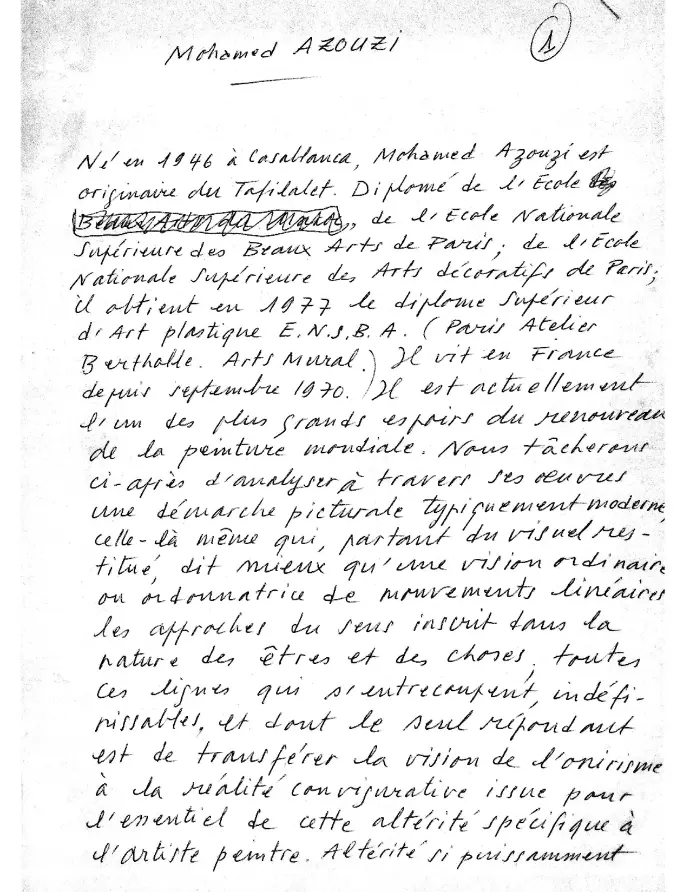 Mohamed AZOUZI
1
Né en 1946 à Casablanca, Mohamed Azouzi est
originaire du Tafilalet. Diplomé de l'Ecole
de l'Ecole Nationale
Supérieure des Beaux Arts de Paris; de l'Ecole
Nationale Supérieure des Arts décoratifs de Paris;
il obtient en 1977 le diplome Supérieur
d'Art plastique E.N.S.B.A. (Paris Atelier
Berthalle. Arts Mural.) Il vit en France
depuis septembre 1970.) Il est actuellement
l'un des plus grands espoirs du renouveau
de la peinture mondiale. Nous tâcherons
ci-après d'analyser à travers ses œuvres
une démarche picturale typiquement moderne,
celle-là même qui, partant du visuel res-
titué, dit mieux qu'une vision ordinaire
ou ordonnatrice de mouvements linéaires
les approches du sens inscrit dans la
nature des êtres et des choses, toutes
ces lignes qui s'entrecoupent, indéfi-
nissables, et dont le seul répondant
est de transférer la vision de l'onirisme
à la réalité convigurative issue pour
l'essentiel de cette altérité spécifique à
l'artiste peintre. Altérité si puissamment